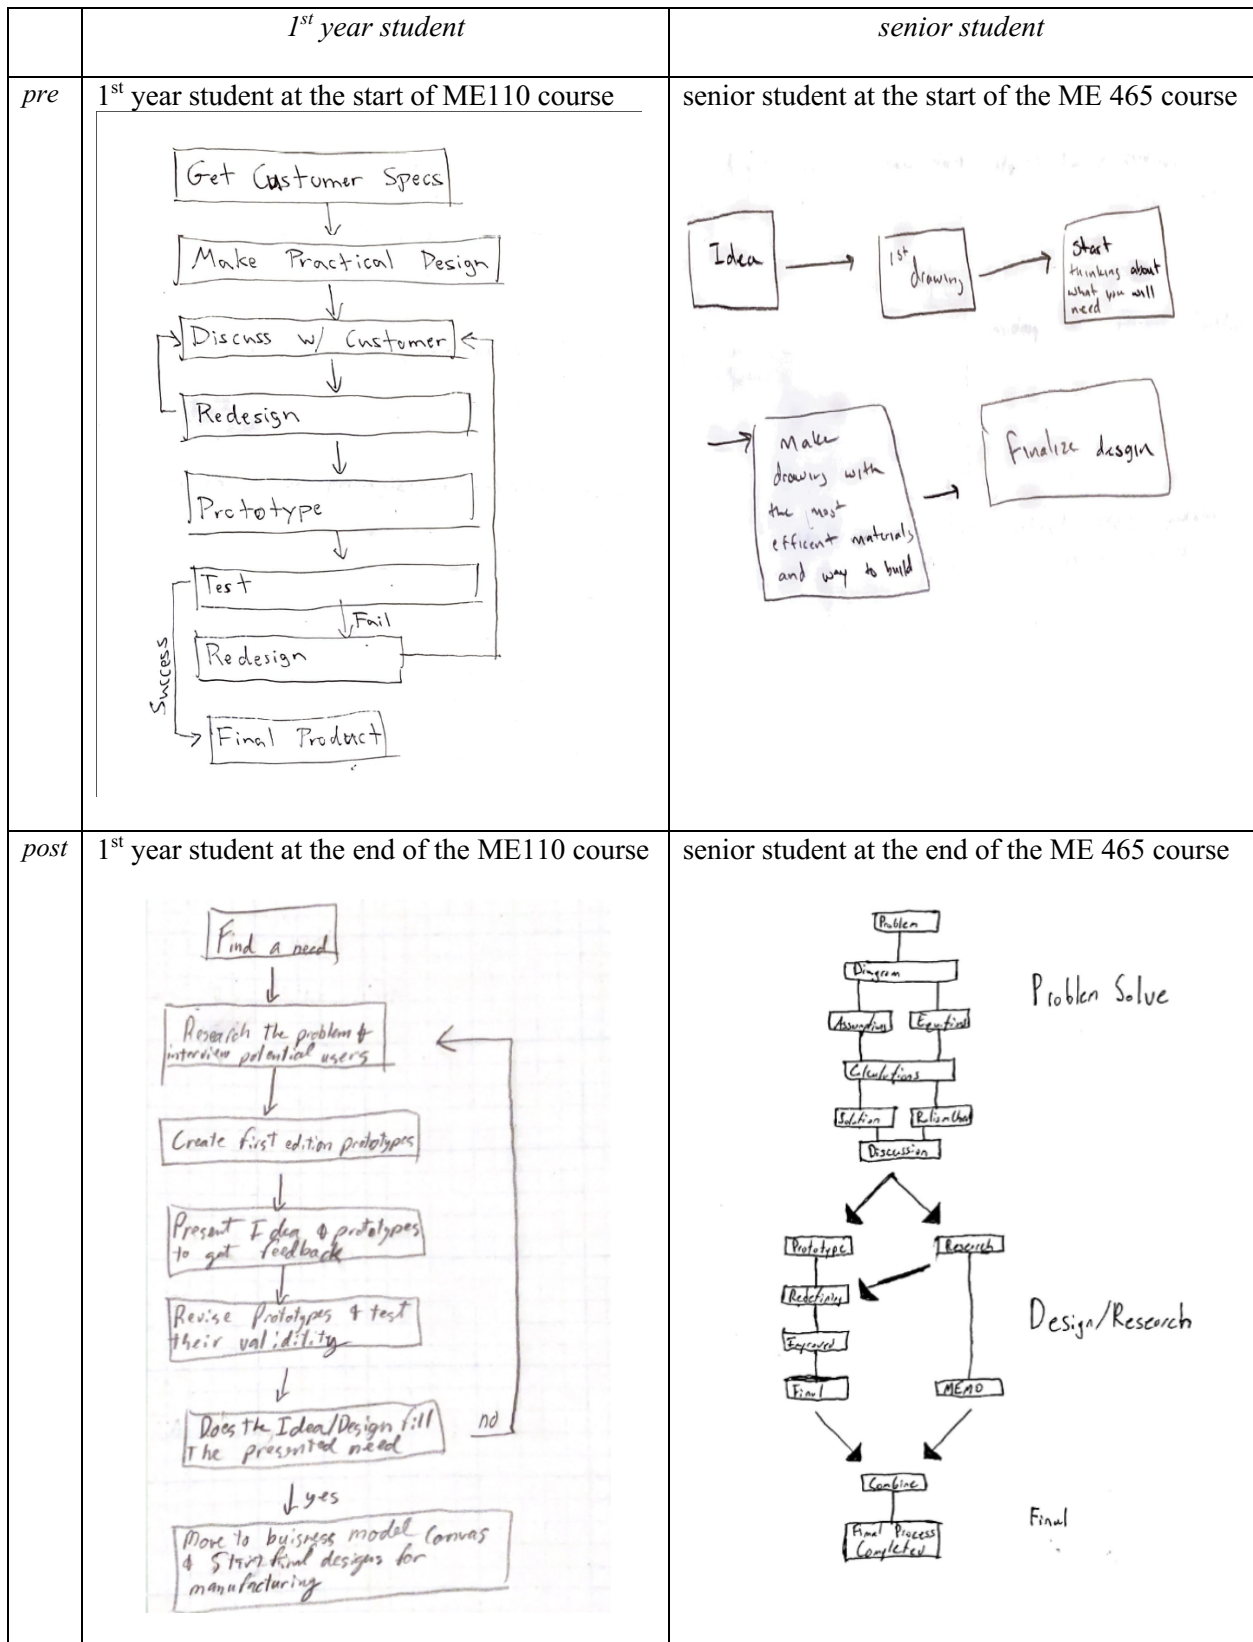 1st year student
senior student
pre
1st year student at the start of ME110 course
Get Customer Specs
Make Practical Design
Discuss w/ Customer
Redesign
Prototype
Test
Fail
Redesign
Success
Final Product
senior student at the start of the ME 465 course
Idea
1st
drawing
Start
thinking about
what you will
need
Make
drawing with
the most
efficent materials
and way to build
Finalize desgin
post
1st year student at the end of the ME110 course
Find a need
Research the problem &
interview potential users
Create first edition prototypes
Present Idea & prototypes
to get feedback
Revise Prototypes & test
their validility
Does the Idea/Design fill
The presented need
no
yes
Move to buisness model Canvas
& final designs for
manufacturing
senior student at the end of the ME 465 course
Problem
Diagram
Assumption
Equations
Calculations
Solution
Discussion
Problem Solve
Prototype
Research
Redefining
Final
MEMO
Design/Research
Combine
Final Process
Completed
Final